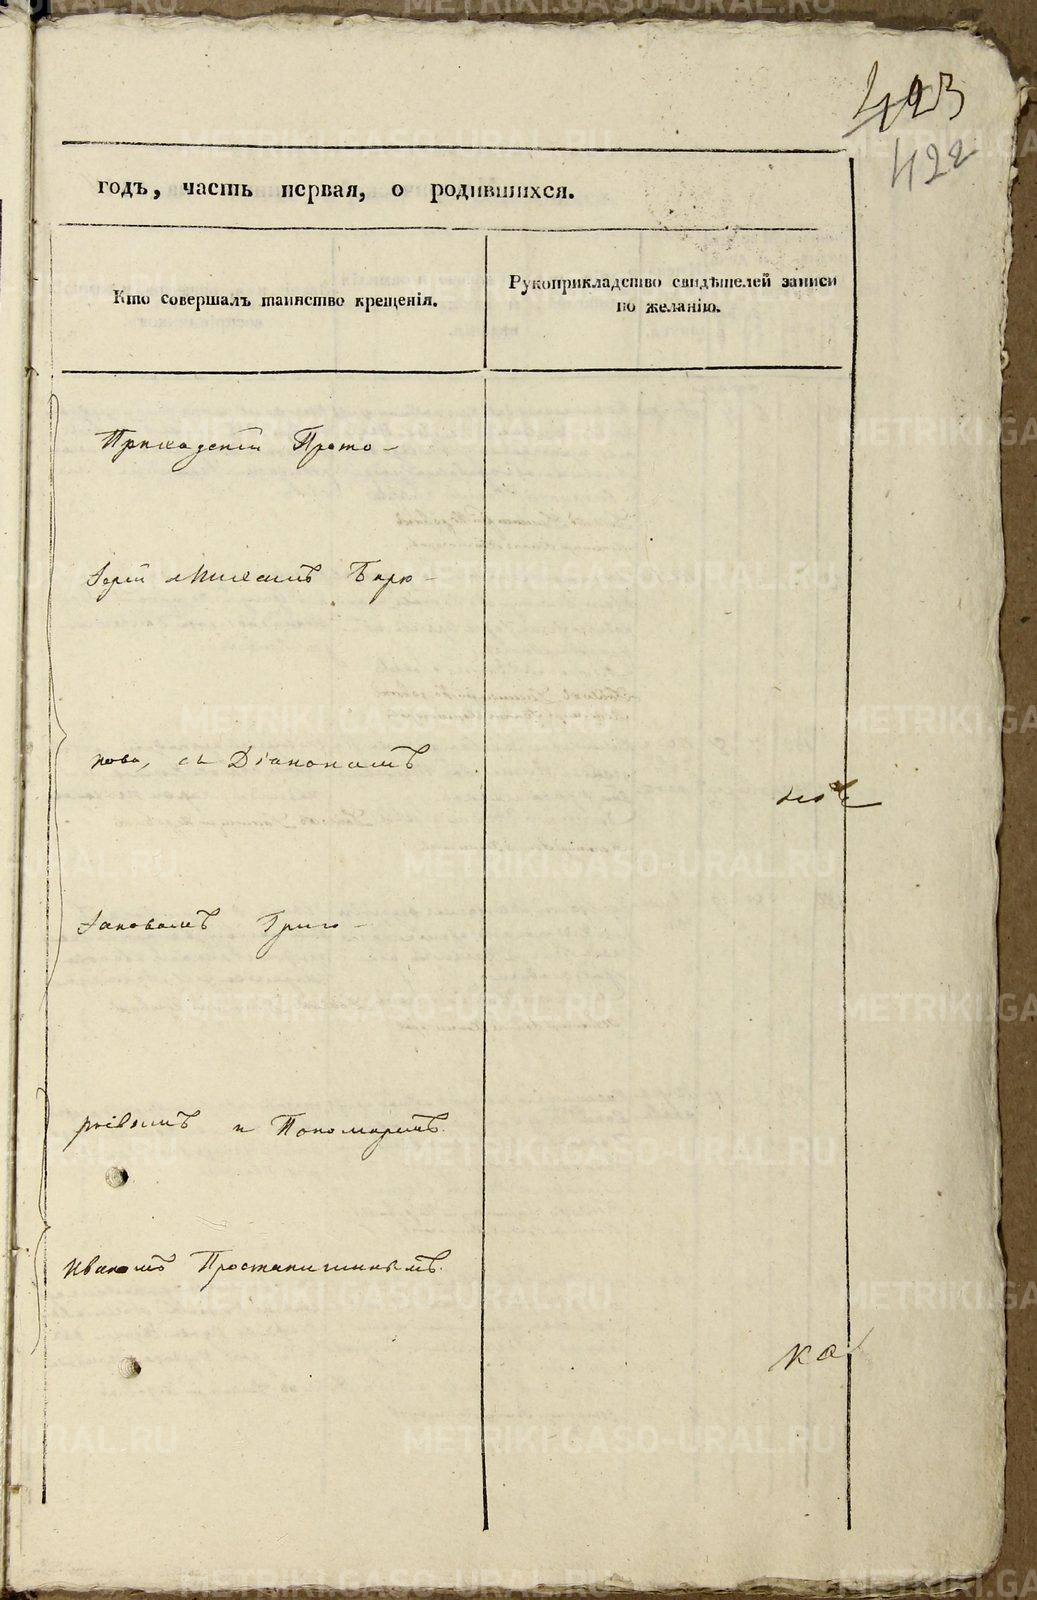 423
422
годъ, часть первая, о родившихся.
Кто совершалъ таинство крещенія.
Рукоприкладство свидѣтелей записи
по желанію.
Приходскій Прото-
Іерей Михаилъ Бирю-
ковъ, съ Діакономъ
Іаковомъ Григо-
рьевымъ и Пономаремъ
Иваномъ
ка
METRIKI.GASO-URAL.RU